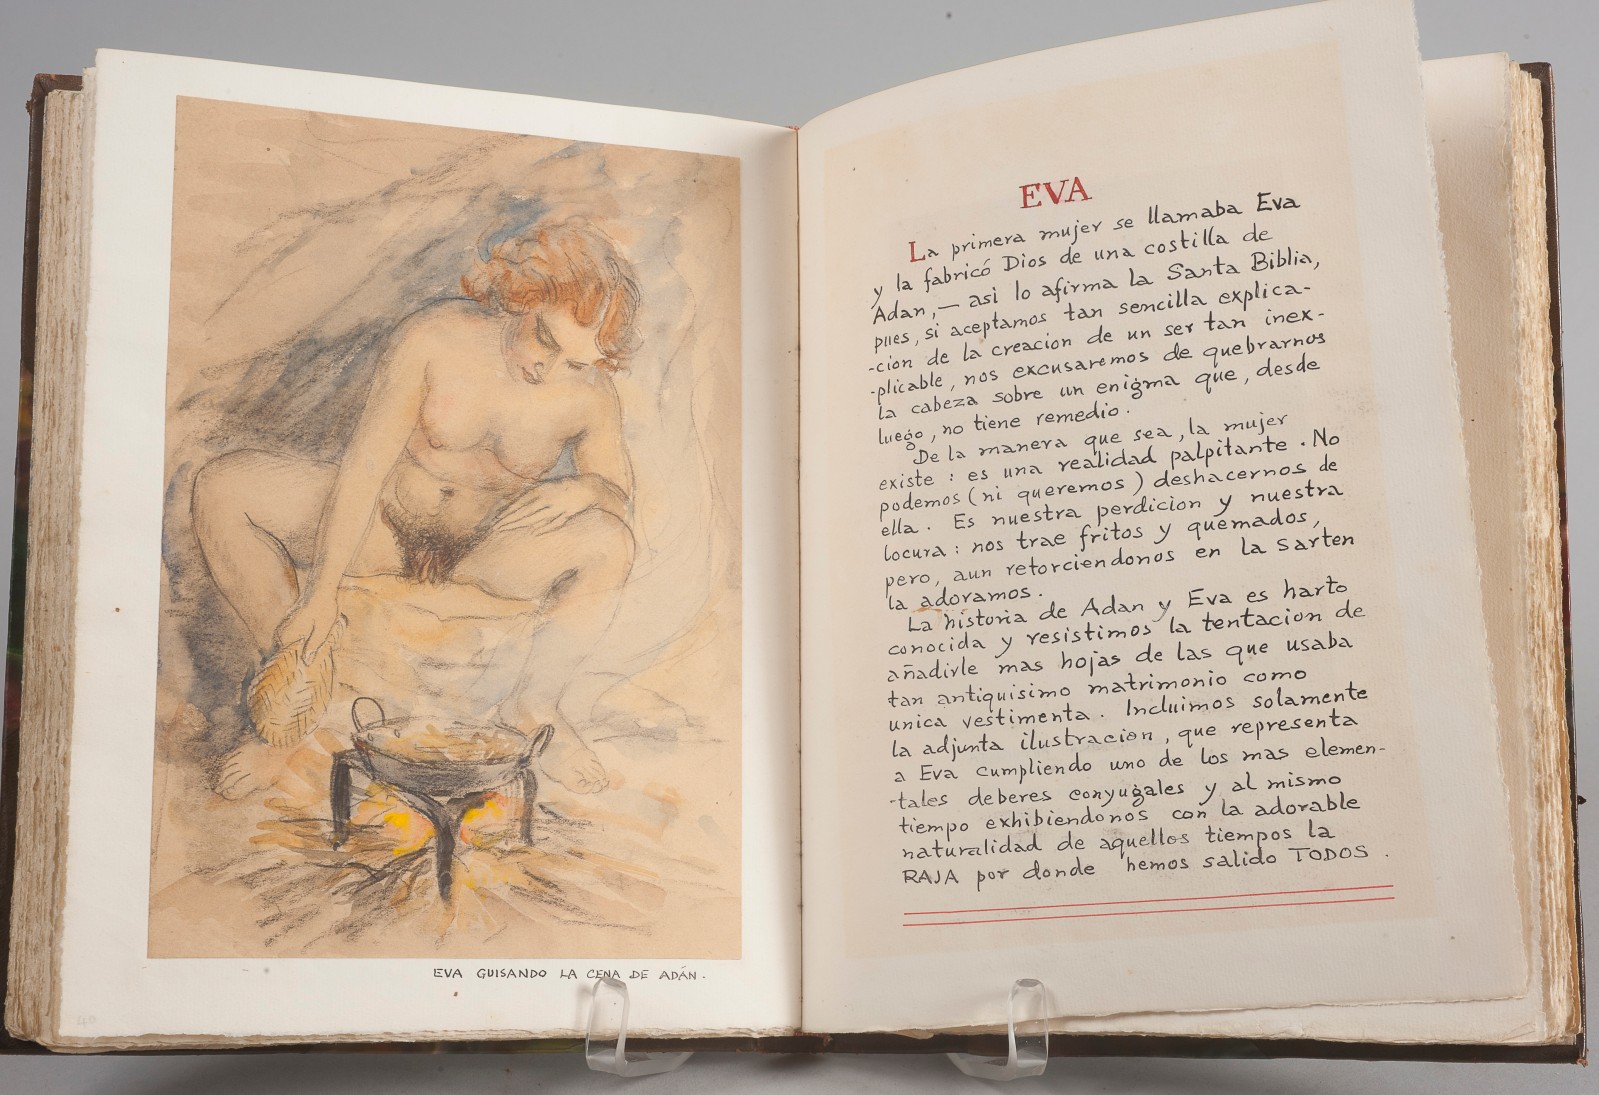 EVA GUISANDO LA CENA DE ADÁN.
40
EVA
La primera mujer se llamaba Eva
y la fabricó Dios de una costilla de
Adan,— asi lo afirma la Santa Biblia,
pues, si aceptamos tan sencilla explica-
-cion de la creacion de un ser tan inex-
-plicable, nos excusaremos de quebrarnos
la cabeza sobre un enigma que, desde
luego, no tiene remedio.
De la manera que sea, la mujer
existe: es una realidad palpitante. No
podemos (ni queremos) deshacernos de
ella. Es nuestra perdicion y nuestra
locura: nos trae fritos y quemados,
pero, aun retorciendonos en la sarten
la adoramos.
La historia de Adan y Eva es harto
conocida y resistimos la tentacion de
añadirle mas hojas de las que usaba
tan antiquisimo matrimonio como
unica vestimenta. Incluimos solamente
la adjunta ilustracion, que representa
a Eva cumpliendo uno de los mas elemen-
-tales deberes conyugales y al mismo
tiempo exhibiendonos con la adorable
naturalidad de aquellos tiempos la
RAJA por donde hemos salido TODOS.